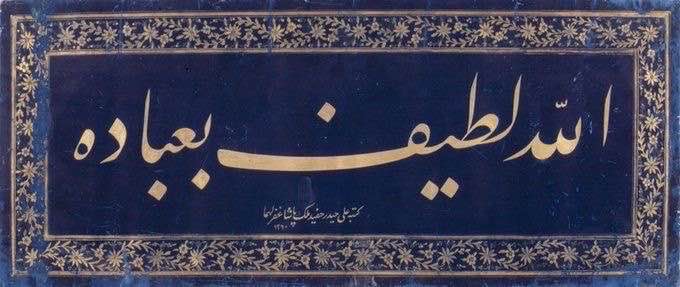 الله لطيف بعباده
كتبه على حيدر حفيد ملك پاشا غفر لهما